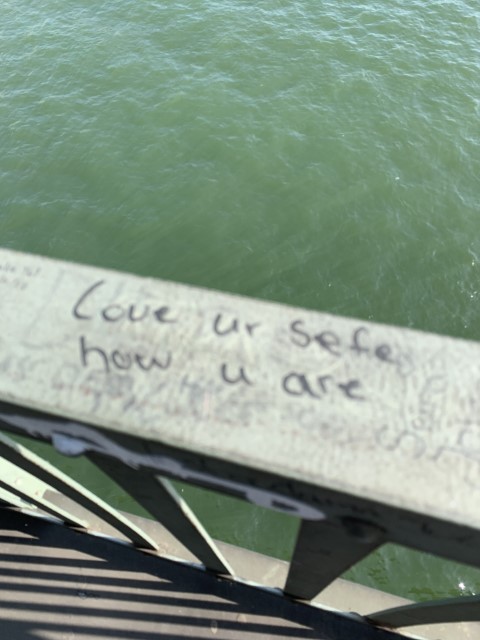 Love ur sefe
how u are